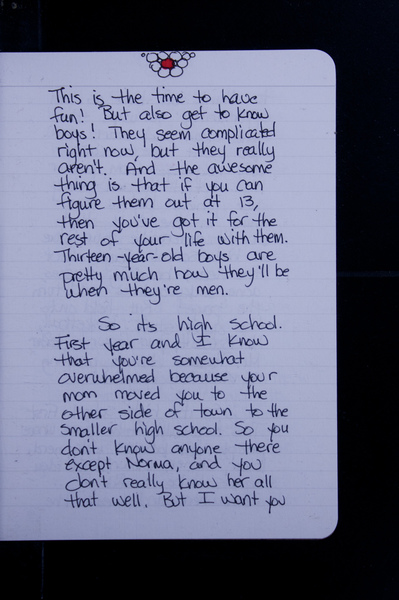 This is the time to have
fun! But also get to know
boys! They seem complicated
right now, but they really
aren't. And the awesome
thing is that if you can
figure them out at 13,
then you've got it for the
rest of your life with them.
Thirteen-year-old boys are
pretty much how they'll be
when they're men.
So its high school.
First year and I know
that you're somewhat
overwhelmed because your
mom moved you to the
other side of town to the
smaller high school. So you
don't know anyone there
except Norma, and you
don't really know her all
that well. But I want you